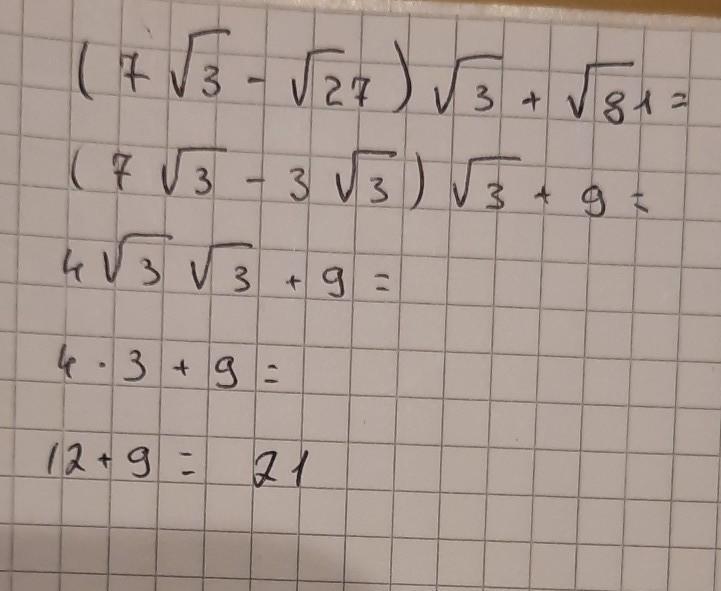 (7√3 - √27)√3 + √81 =
(7√3 - 3√3)√3 + 9 =
4√3 √3 + 9 =
4 · 3 + 9 =
12 + 9 = 21